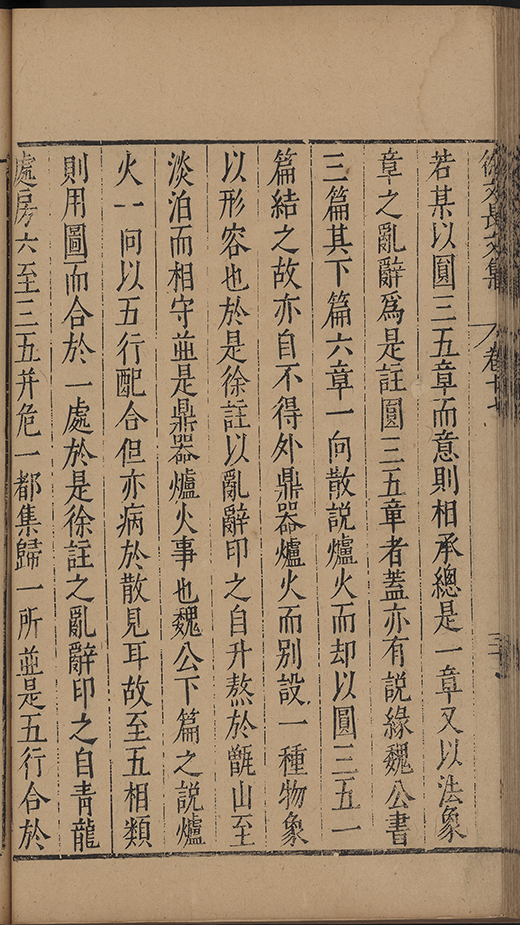 徐文長文集 卷十七
若某以圓三五章而意則相承總是一章又以法象
章之亂辭爲是註圓三五章者蓋亦有説緣魏公書
三篇其下篇六章一向散説爐火而却以圓三五一
篇結之故亦自不得外鼎器爐火而別設一種物象
以形容也於是徐註以亂辭印之自升熬於甑山至
淡泊而相守並是鼎器爐火事也魏公下篇之説爐
火一向以五行配合但亦病於散見耳故至五相類
則用圖而合於一處於是徐註之亂辭印之自青龍
處房六至三五并危一都集歸一所並是五行合於